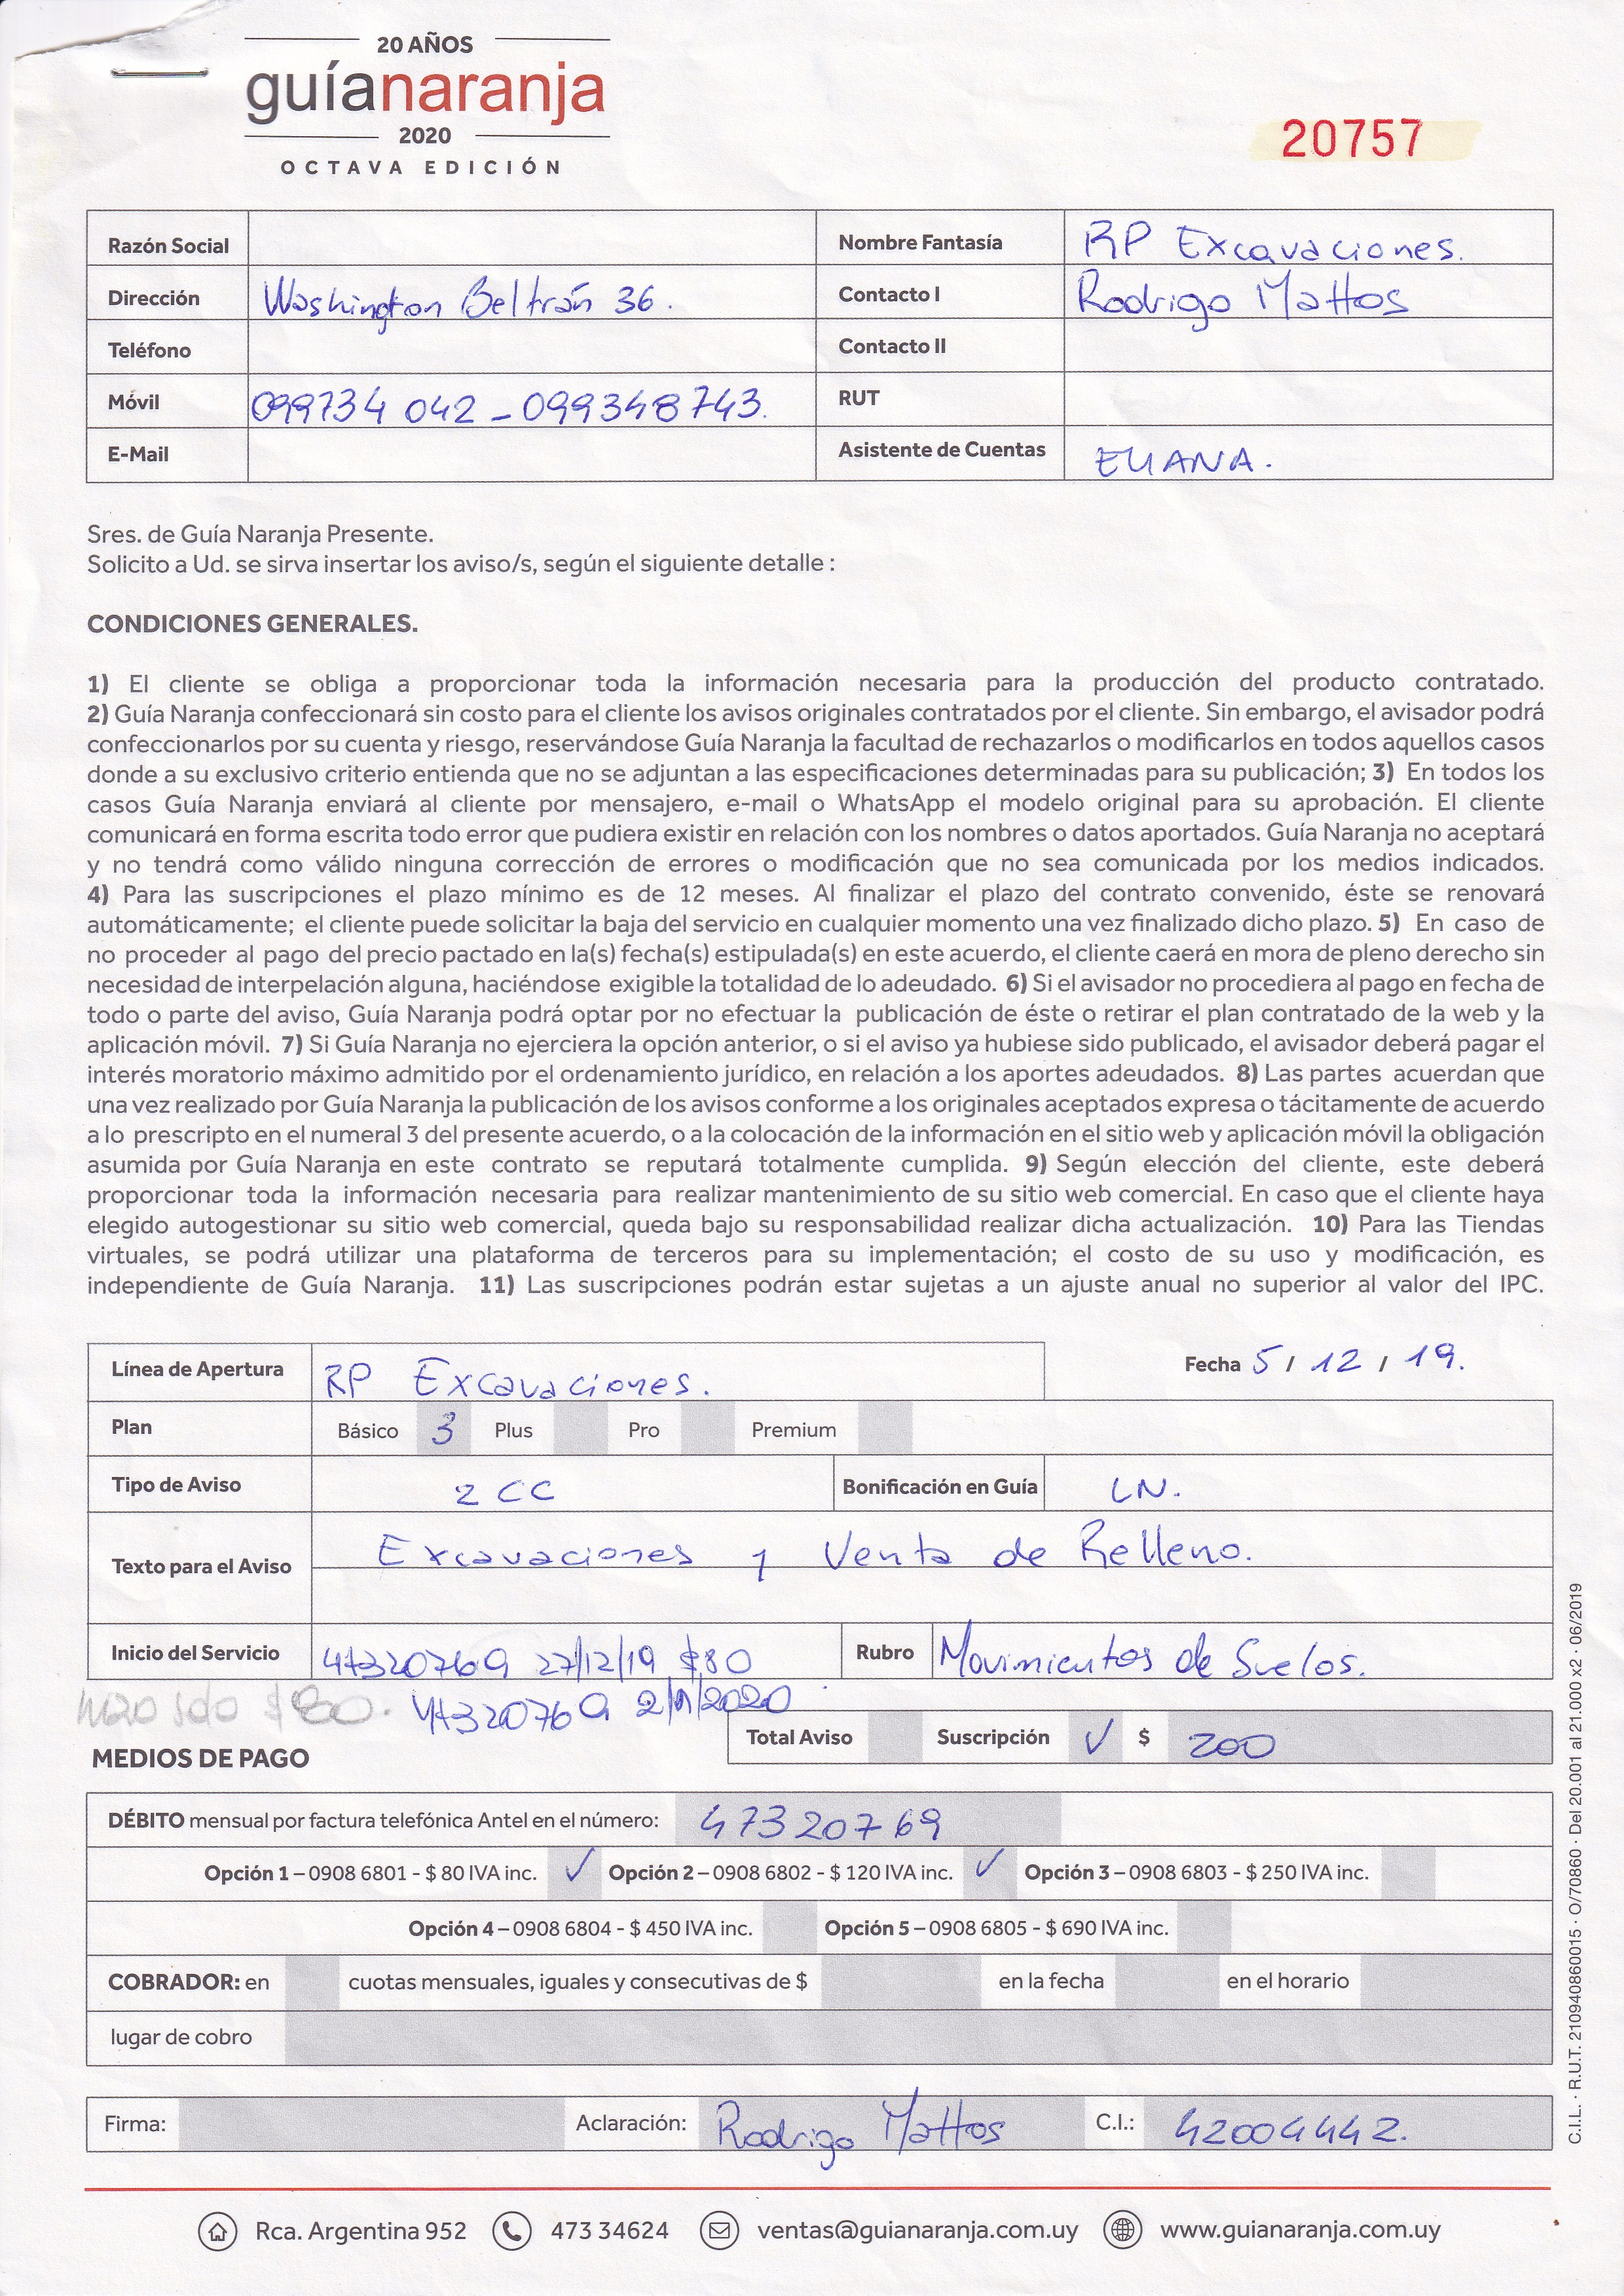 20 AÑOS
guíanaranja
2020
OCTAVA EDICIÓN
20757
Razón Social
Nombre Fantasía RP Excavaciones.
Dirección Washington Beltrán 36.
Contacto I Rodrigo Mattos
Teléfono
Contacto II
Móvil 099734 042 - 099348743.
RUT
E-Mail
Asistente de Cuentas ELIANA.
Sres. de Guía Naranja Presente.
Solicito a Ud. se sirva insertar los aviso/s, según el siguiente detalle :
CONDICIONES GENERALES.
1) El cliente se obliga a proporcionar toda la información necesaria para la producción del producto contratado.
2) Guía Naranja confeccionará sin costo para el cliente los avisos originales contratados por el cliente. Sin embargo, el avisador podrá
confeccionarlos por su cuenta y riesgo, reservándose Guía Naranja la facultad de rechazarlos o modificarlos en todos aquellos casos
donde a su exclusivo criterio entienda que no se adjuntan a las especificaciones determinadas para su publicación; 3) En todos los
casos Guía Naranja enviará al cliente por mensajero, e-mail o WhatsApp el modelo original para su aprobación. El cliente
comunicará en forma escrita todo error que pudiera existir en relación con los nombres o datos aportados. Guía Naranja no aceptará
y no tendrá como válido ninguna corrección de errores o modificación que no sea comunicada por los medios indicados.
4) Para las suscripciones el plazo mínimo es de 12 meses. Al finalizar el plazo del contrato convenido, éste se renovará
automáticamente; el cliente puede solicitar la baja del servicio en cualquier momento una vez finalizado dicho plazo. 5) En caso de
no proceder al pago del precio pactado en la(s) fecha(s) estipulada(s) en este acuerdo, el cliente caerá en mora de pleno derecho sin
necesidad de interpelación alguna, haciéndose exigible la totalidad de lo adeudado. 6) Si el avisador no procediera al pago en fecha de
todo o parte del aviso, Guía Naranja podrá optar por no efectuar la publicación de éste o retirar el plan contratado de la web y la
aplicación móvil. 7) Si Guía Naranja no ejerciera la opción anterior, o si el aviso ya hubiese sido publicado, el avisador deberá pagar el
interés moratorio máximo admitido por el ordenamiento jurídico, en relación a los aportes adeudados. 8) Las partes acuerdan que
una vez realizado por Guía Naranja la publicación de los avisos conforme a los originales aceptados expresa o tácitamente de acuerdo
a lo prescripto en el numeral 3 del presente acuerdo, o a la colocación de la información en el sitio web y aplicación móvil la obligación
asumida por Guía Naranja en este contrato se reputará totalmente cumplida. 9) Según elección del cliente, este deberá
proporcionar toda la información necesaria para realizar mantenimiento de su sitio web comercial. En caso que el cliente haya
elegido autogestionar su sitio web comercial, queda bajo su responsabilidad realizar dicha actualización. 10) Para las Tiendas
virtuales, se podrá utilizar una plataforma de terceros para su implementación; el costo de su uso y modificación, es
independiente de Guía Naranja. 11) Las suscripciones podrán estar sujetas a un ajuste anual no superior al valor del IPC.
Línea de Apertura RP Excavaciones.
Fecha 5 / 12 / 19.
Plan Básico 3 Plus Pro Premium
Tipo de Aviso 2 CC Bonificación en Guía LN.
Texto para el Aviso Excavaciones y Venta de Relleno.
Inicio del Servicio 47320769 27/12/19 $80 Rubro Movimientos de Suelos.
$80. 47320769 2/1/2020
Total Aviso Suscripción ✓ $ 200
MEDIOS DE PAGO
DÉBITO mensual por factura telefónica Antel en el número: 47320769
Opción 1 – 0908 6801 - $ 80 IVA inc. ✓ Opción 2 – 0908 6802 - $ 120 IVA inc. ✓ Opción 3 – 0908 6803 - $ 250 IVA inc.
Opción 4 – 0908 6804 - $ 450 IVA inc. Opción 5 – 0908 6805 - $ 690 IVA inc.
COBRADOR: en cuotas mensuales, iguales y consecutivas de $ en la fecha en el horario
lugar de cobro
Firma: Aclaración: Rodrigo Mattos C.I.: 42004442.
C.I.L. · R.U.T. 210940860015 · O/70860 · Del 20.001 al 21.000 x2 · 06/2019
Rca. Argentina 952 473 34624 ventas@guianaranja.com.uy www.guianaranja.com.uy